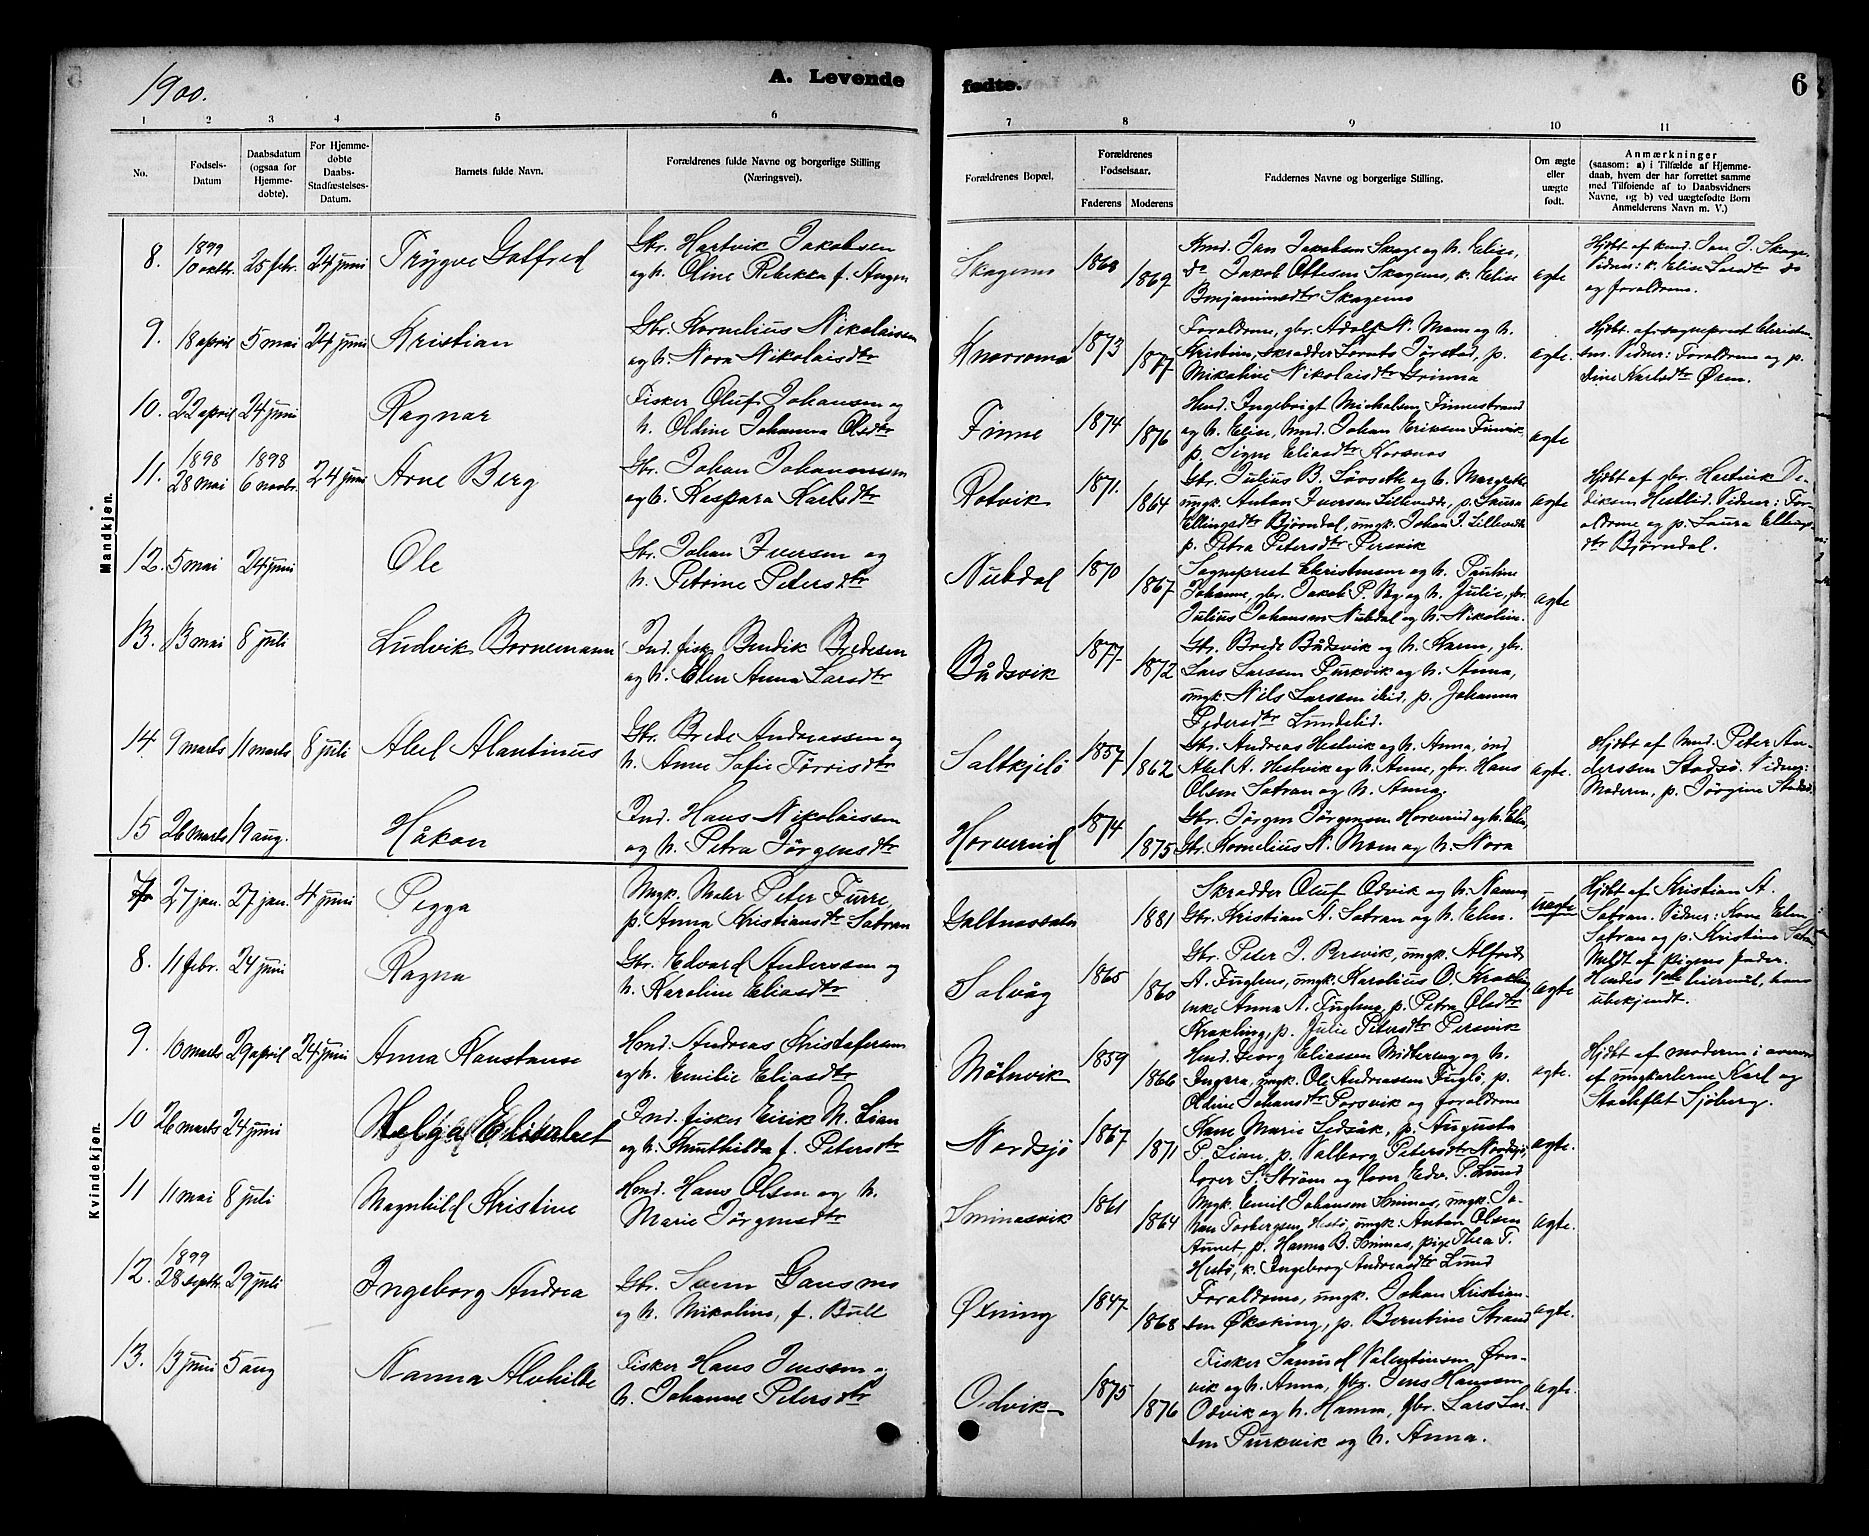 1900.
A. Levende
fødte.
6
1 2 3 4 5 6 7 8 9 10 11
No.
Fødsels-
Datum
Daabsdatum
(ogsaa for
Hjemme-
døbte).
For Hjemme-
døbte
Daabs-
Stadfæstelses-
Datum.
Barnets fulde Navn.
Forældrenes fulde Navne og borgerlige Stilling
(Næringsvei).
Forældrenes Bopæl.
Forældrenes
Fødselsaar.
Faderens Moderens
Faddernes Navne og borgerlige Stilling.
Om ægte
eller
uægte
født.
Anmærkninger
(saasom: a) i Tilfælde af Hjemme-
daab, hvem der har forrettet samme
med Tilføiende af to Daabsvidners
Navne, og b) ved uægtefødte Born
Anmelderens Navn m. V.)
Mandkjøn.
8. 1899 10 oktbr. 25 febr. 24 juni Trygve Galfred
Gbr. Hartvik Jakobsen
og h. Oline Rebekka f. Angen
1868 1869 ægte
Kmd. Jan Jakobsen Skage og h. Elise,
do Jakob Ottesen Skagens, k. Elise
Benjaminsdtr Skagens
Hjdbt af kmd. Jan J. Skagen
Vidner: k. Elise Larsdtr do
og forældrene.
9. 18 april 5 mai 24 juni Kristian
Gbr. Kornelius Nikolaissen
og h. Nora Nikolaisdtr
1873 1877 ægte.
Forældrene, gbr. Adolf N. Moen og h.
Kristine, skrædder Lorents Jørstad, p.
Mikaline Nikolaisdtr Grinna
Hjdbt. af sogneprest Christen-
sen. Vidner: Forældrene og p.
Dine Karlsdtr Øren.
10. 22 april 24 juni Ragnar
Fisker Oluf Johansen og
h. Oldine Johanna Olsdtr
Finne 1874 1876 ægte
Hmd. Ingebrigt Mickalsen Finnestrand
og h. Elise, hmd. Johan Eriksen Finvik,
p. Signe Eliasdtr Korsnes
11. 1898 28 mai 1898 6 novbr. 24 juni Arne Berg
Gbr. Johan Johannesen
og h. Kaspara Karlsdtr
Rotvik 1871. 1864 ægte
Gbr. Julius B. Løvseth og h. Margrethe
ungk. Anton Iversen Lillevedde, p. Laura
Ellingsdtr Bjørndal, ungk. Johan J. Lillevedde
p. Petra Petersdtr Persvik
Hjdbt af gbr. Hartvik Di-
diksen Hestlid. Vidner: For-
ældrene og p. Laura Ellings-
dtr Bjørndal.
12. 5 mai 24 juni Ole
Gbr. Johan Iversen og
h. Petrine Petersdtr
Nubdal 1870 1867 ægte
Sogneprest Christensen og h. Pauline
Johanne, gbr. Jakob P. By og h. Julie, gbr.
Julius Johansen Nubdal og h. Nikoline.
13. 13 mai 8 juli Ludvik Bornemann
Ind. fisk. Bendik Bredesen
og h. Elen Anna Larsdtr
Bådsvik 1877 1872 ægte.
Gbr. Brede Bådsvik og h. Karen, gbr.
Lars Larssen Purkvik og h. Anna,
ungk. Nils Larssen ibid, p. Johanna
Pedersdtr Lundelid.
14. 9 marts 11 marts 8 juli Abel Alantinus
Gbr. Brede Andreassen og
h. Anne Sofie Tørrisdtr
Saltkjelø 1857 1862 ægte.
Gbr. Andreas Hestvik og h. Anna, ind
Abel A. Hestvik og h. Anne, gbr. Hans
Olsen Sætran og h. Anna.
Hjdbt af hmd. Peter An-
derssen Stadsø. Vidner:
Moderen, p. Jørgine Stadsø
15 26 marts 19 aug. Håkon
Ind. Hans Nikolaissen
og h. Petra Jørgensdtr
Horvereid 1874 1875
Gbr. Jørgen Jørgensen Horvereid og h. Elen,
Gbr. Kornelius N. Moen og h. Nora
Kvindekjøn.
7 27 jan. 27 jan. 4 juni Pegga
Ungk. Maler Peter Furre,
p. Anna Kristiansdtr Sætran
1881 uægte
Skrædder Oluf Odvik og h. Nanna,
Gbr. Kristian A. Sætran og h. Elen.
Hjdbt af Kristian A.
Sætran. Vidner: Kone Elen
Sætran og p. Kristine Sætran
Meldt af pigens fader.
Hendes 1ste leiermål, hans
ubekjendt.
8. 11 febr. 24 juni Ragna
Gbr. Edvard Anderssen og
h. Karoline Eliasdtr
Salvåg 1865 1860 ægte
Gbr. Peter J. Persvik, ungk. Alfred
A. Fuglsnes, ungk. Karolius O. Krækling,
enke Anna A. Fuglsnes, p. Petra Olsdtr
Krækling, p. Julie Petersdtr Persvik
9. 10 marts 29 april 24 juni Anna Konstanse
Hmd. Andreas Kristofersen
og h. Emilie Eliasdtr
Målnvik 1859 1866 ægte.
Hmd. Georg Eliassen Mitterøy og h.
Ingera, ungk. Ole Andreassen Fuglø, p.
Oldine Johansdtr Porsvik og forældrene
Hjdbt af moderen i overvær
af ungkarlene Karl og
Sjøberg.
10 26 marts 24 juni Helga Elisabet
Ind. fisker Eirik M. Lian
og h. Knuthilda f. Petersdtr
Nordsjø 1867 1871 ægte.
Kone Marie Ledsåk, p. Augusta
P. Lian, p. Valborg Petersdtr Nordsjø,
lærer S. Strøm og loov Edv. P. Lund
11 11 mai 8 juli Magnhild Kristine
Hmd. Hans Olsen og h.
Marie Jørgensdtr
Sminesvik 1861 1864 ægte.
Ungk. Emil Johansen Smines, ungk. Jo-
han Torbergsen, Hestø, ungk. Anton Olsen
Aunet, p. Hanna B. Smines, pige Thea T.
Hestø, k. Ingeborg Andreasdtr Lund
12. 1899 28 septbr. 29 juli Ingeborg Andrea
Gbr. Sven Gansmo
og h. Nikoline, f. Bull
Øxning 1847 1868 ægte.
Forældrene, ungk. Johan Kristian-
sen Øksning, p. Berntine Strand
13. 13 juni 5 aug Nanna Alvhilde
Fisker Hans Jenssen og
h. Johanne Petersdtr
Odvik 1875 1876 ægte.
Fisker Samuel Valentinsen Ørn-
vik og h. Anna, gbr. Jens Hanssen
Odvik og h. Hanna, gbr. Lars Lar-
sen Purkvik og h. Anna.